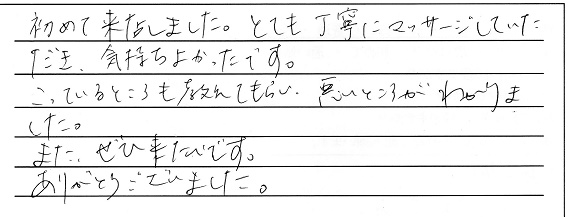 初めて来店しました。とても丁寧にマッサージしていた
だき、気持ちよかったです。
こっているところも教えてもらい、悪いところがわかりま
した。
また、ぜひ来たいです。
ありがとうございました。